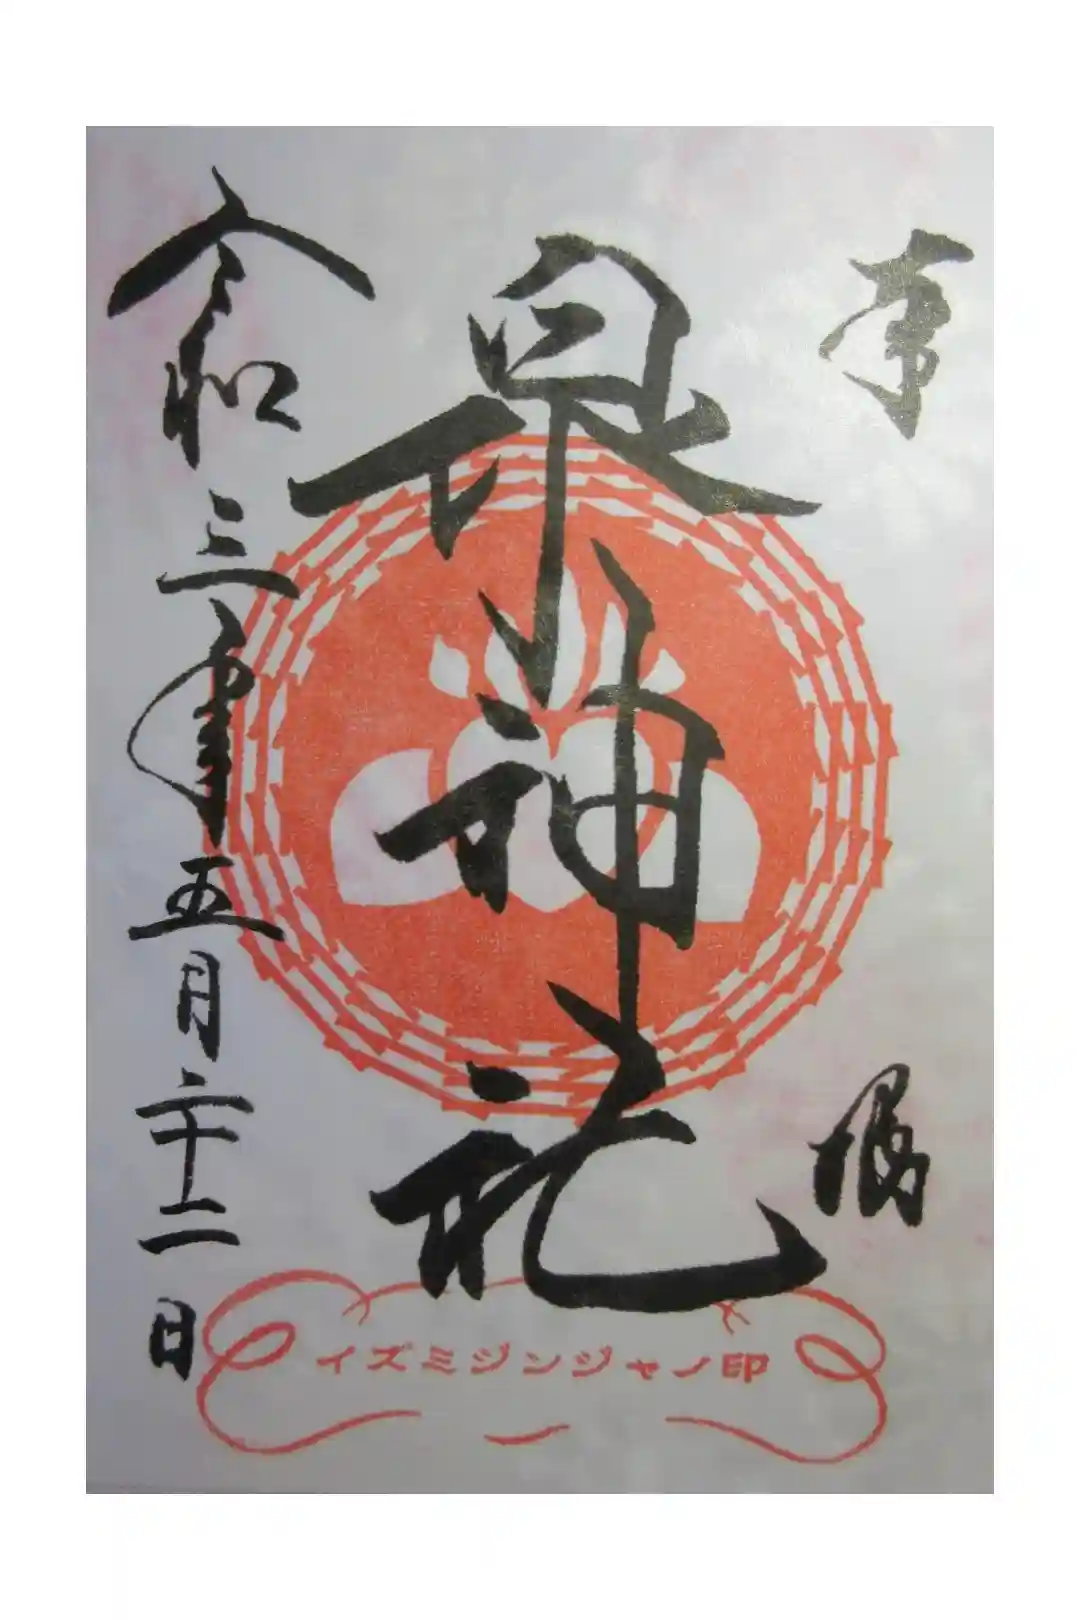 奉
拝
泉神社
令和三年五月二十二日
イズミジンジャノ印